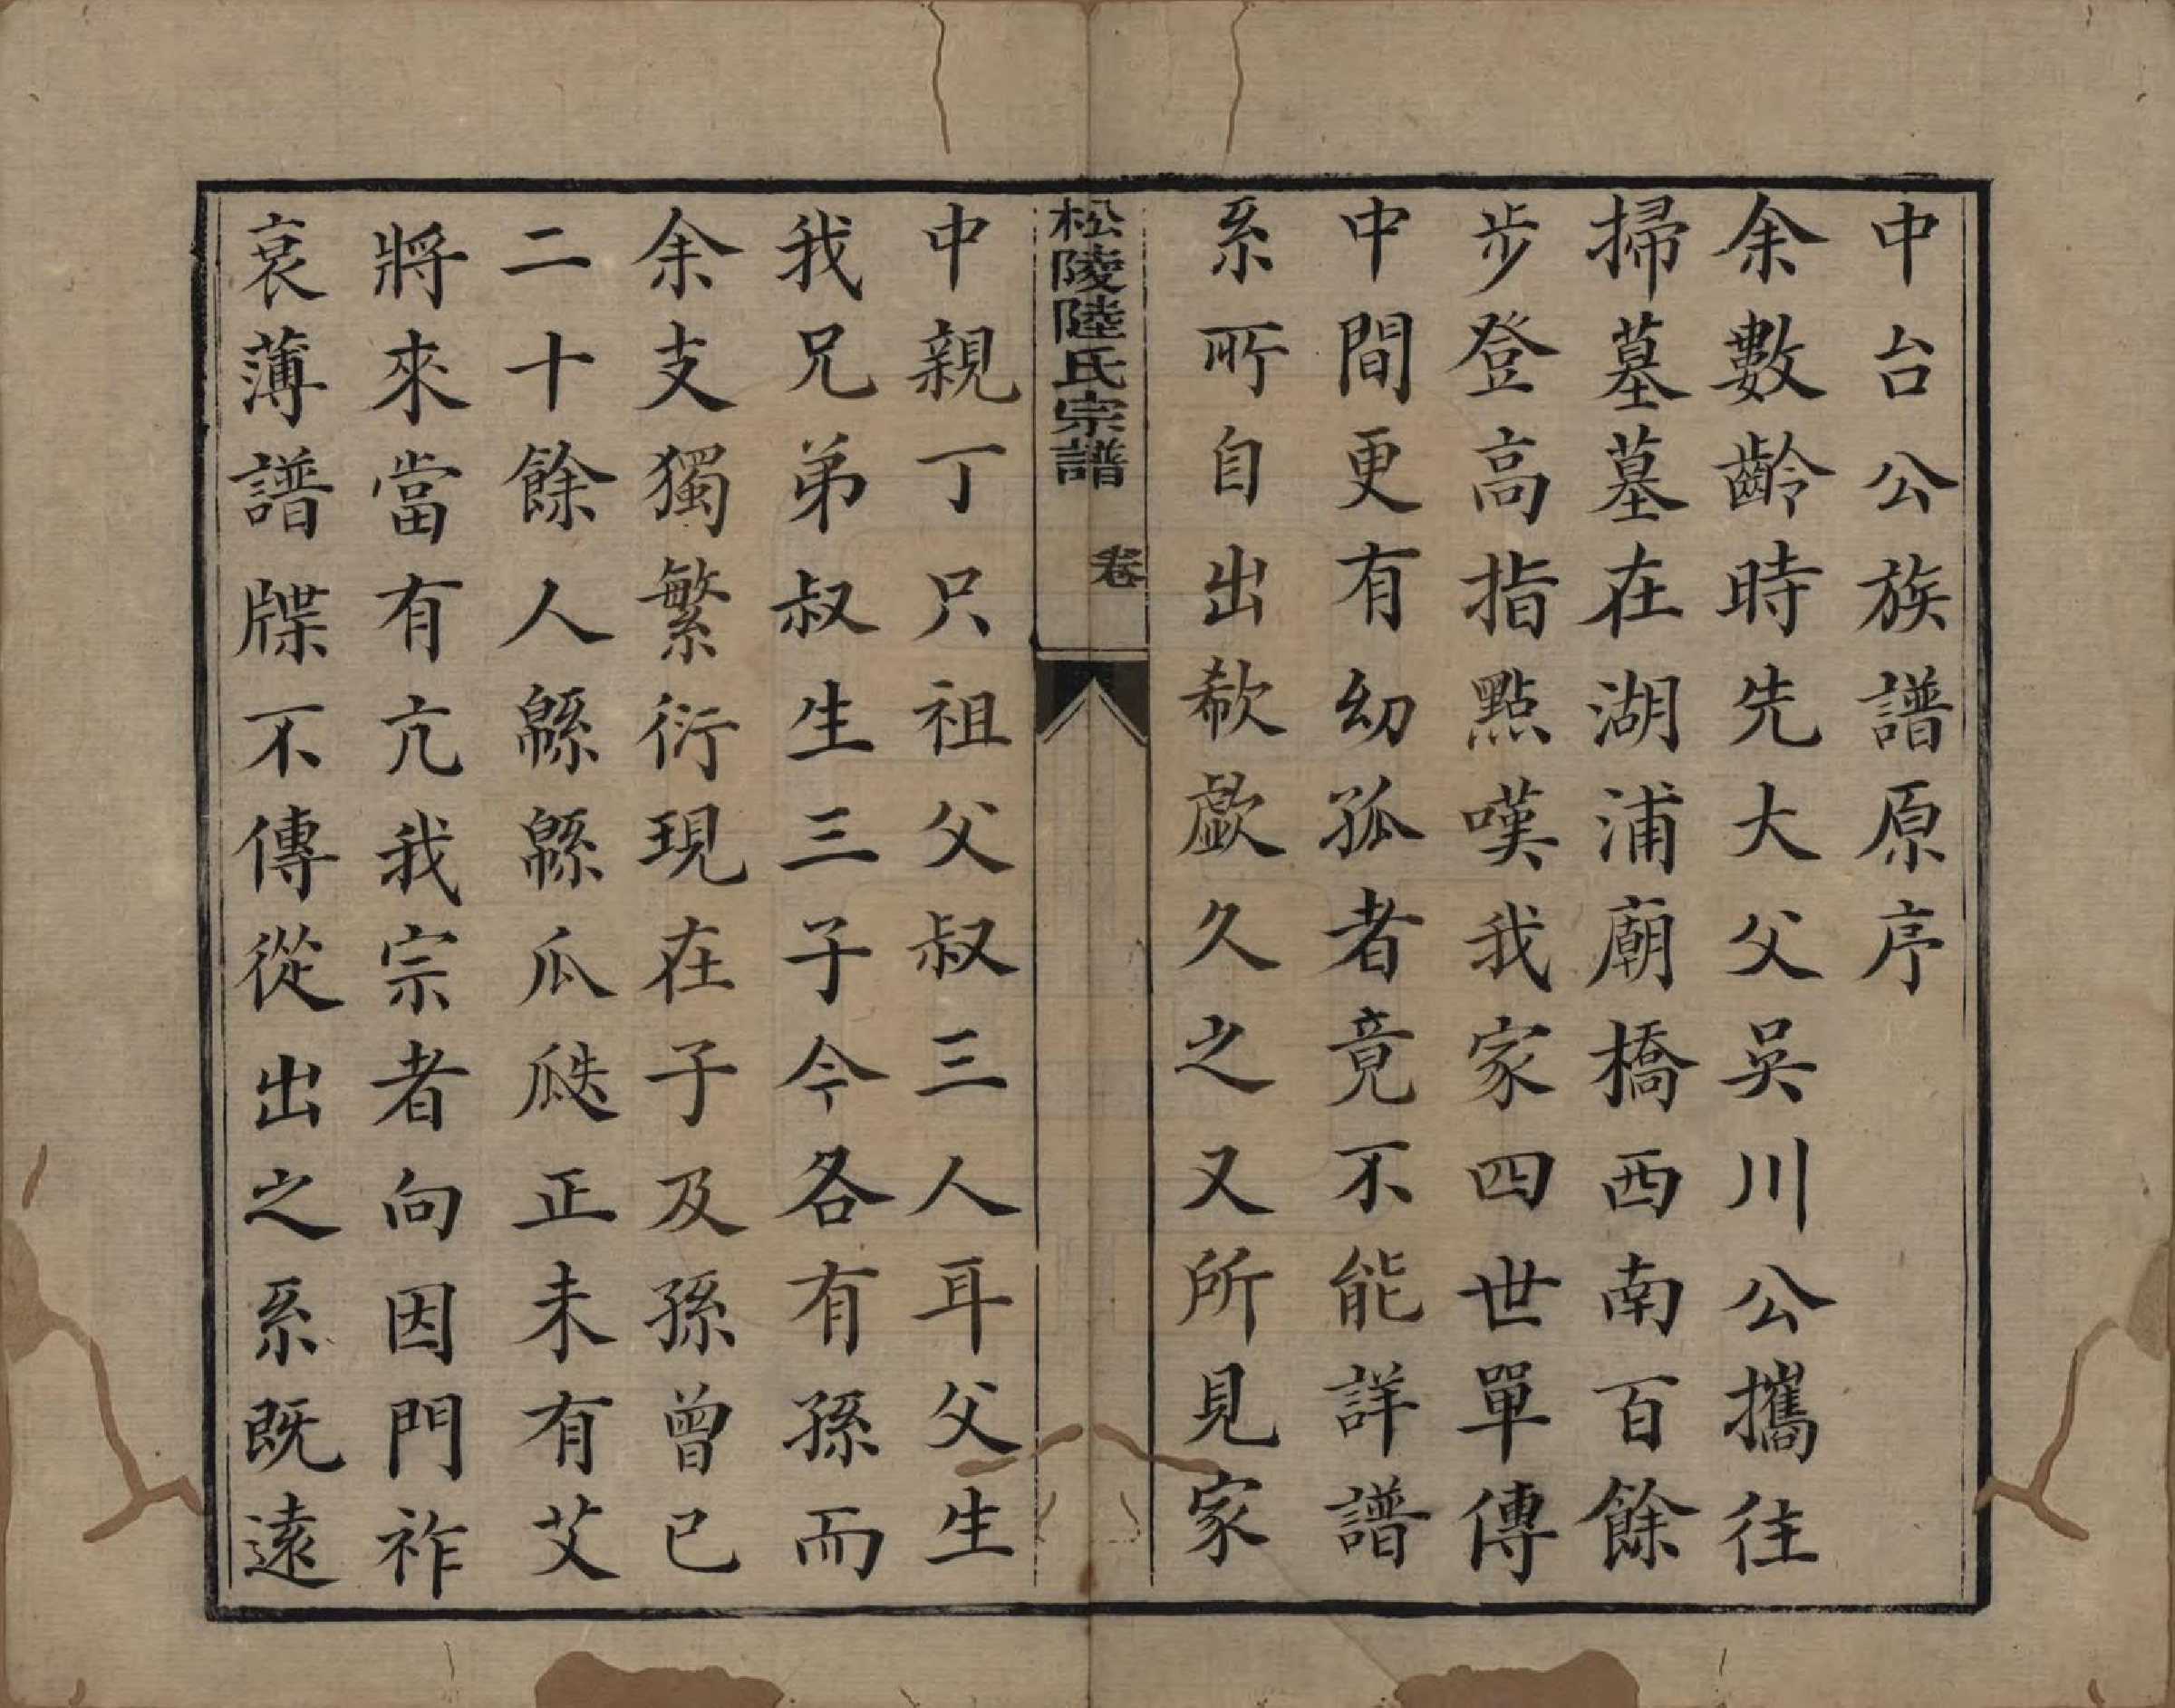 中台公族譜原序
余數齡時先大父吳川公攜往
掃墓墓在湖浦廟橋西南百餘
步登高指點嘆我家四世單傳
中間更有幼孤者竟不能詳譜
系所自出欷歔久之又所見家
松陵陸氏宗譜 卷
中親丁只祖父叔三人耳父生
我兄弟叔生三子今各有孫而
余支獨繁衍現在子及孫曾已
二十餘人緜緜瓜瓞正未有艾
將來當有亢我宗者向因門祚
衰薄譜牒不傳從出之系既遠